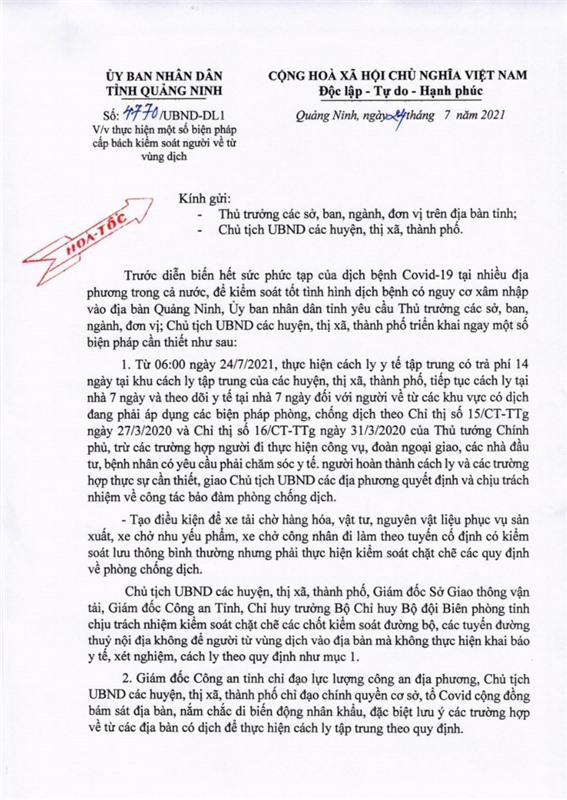 ỦY BAN NHÂN DÂN
TỈNH QUẢNG NINH
Số: 4770/UBND-DL1
V/v thực hiện một số biện pháp
cấp bách kiểm soát người về từ
vùng dịch
CỘNG HOÀ XÃ HỘI CHỦ NGHĨA VIỆT NAM
Độc lập - Tự do - Hạnh phúc
Quảng Ninh, ngày 24 tháng 7 năm 2021
HOẢ-TỐC
Kính gửi:
- Thủ trưởng các sở, ban, ngành, đơn vị trên địa bàn tỉnh;
- Chủ tịch UBND các huyện, thị xã, thành phố.
Trước diễn biến hết sức phức tạp của dịch bệnh Covid-19 tại nhiều địa
phương trong cả nước, để kiểm soát tốt tình hình dịch bệnh có nguy cơ xâm nhập
vào địa bàn Quảng Ninh, Ủy ban nhân dân tỉnh yêu cầu Thủ trưởng các sở, ban,
ngành, đơn vị; Chủ tịch UBND các huyện, thị xã, thành phố triển khai ngay một số
biện pháp cần thiết như sau:
1. Từ 06:00 ngày 24/7/2021, thực hiện cách ly y tế tập trung có trả phí 14
ngày tại khu cách ly tập trung của các huyện, thị xã, thành phố, tiếp tục cách ly tại
nhà 7 ngày và theo dõi y tế tại nhà 7 ngày đối với người về từ các khu vực có dịch
đang phải áp dụng các biện pháp phòng, chống dịch theo Chỉ thị số 15/CT-TTg
ngày 27/3/2020 và Chỉ thị số 16/CT-TTg ngày 31/3/2020 của Thủ tướng Chính
phủ, trừ các trường hợp người đi thực hiện công vụ, đoàn ngoại giao, các nhà đầu
tư, bệnh nhân có yêu cầu phải chăm sóc y tế. người hoàn thành cách ly và các trường
hợp thực sự cần thiết, giao Chủ tịch UBND các địa phương quyết định và chịu trách
nhiệm về công tác bảo đảm phòng chống dịch.
- Tạo điều kiện để xe tải chở hàng hóa, vật tư, nguyên vật liệu phục vụ sản
xuất, xe chở nhu yếu phẩm, xe chở công nhân đi làm theo tuyến cố định có kiểm
soát lưu thông bình thường nhưng phải thực hiện kiểm soát chặt chẽ các quy định
về phòng chống dịch.
Chủ tịch UBND các huyện, thị xã, thành phố, Giám đốc Sở Giao thông vận
tải, Giám đốc Công an Tỉnh, Chỉ huy trưởng Bộ Chỉ huy Bộ đội Biên phòng tỉnh
chịu trách nhiệm kiểm soát chặt chẽ các chốt kiểm soát đường bộ, các tuyến đường
thuỷ nội địa không để người từ vùng dịch vào địa bàn mà không thực hiện khai báo
y tế, xét nghiệm, cách ly theo quy định như mục 1.
2. Giám đốc Công an tỉnh chỉ đạo lực lượng công an địa phương, Chủ tịch
UBND các huyện, thị xã, thành phố chỉ đạo chính quyền cơ sở, tổ Covid cộng đồng
bám sát địa bàn, nắm chắc di biến động nhân khẩu, đặc biệt lưu ý các trường hợp
về từ các địa bàn có dịch để thực hiện cách ly tập trung theo quy định.